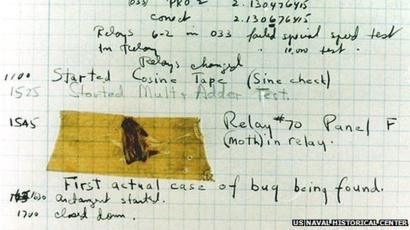 033 PRO 2 2.130476415
conect 2.130676415
Relays 6-2 in 033 failed special speed test
In relay " 10.000 test.
Relays changed
1100 Started Cosine Tape (Sine check)
1525 Started Mult + Adder Test.
1545 Relay #70 Panel F
(moth) in relay.
First actual case of bug being found.
1630 antangent started.
1700 closed down.
US NAVAL HISTORICAL CENTER